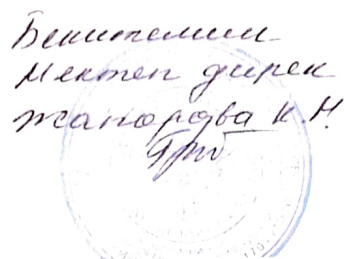 Бекитемин
Мектеп дирек
Жапарова К.Н.